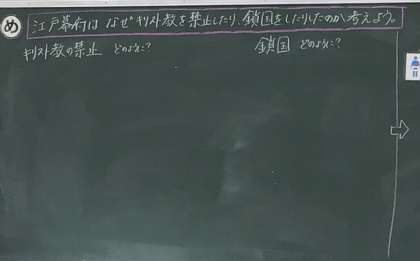 め
江戸幕府は なぜキリスト教を禁止したり、鎖国をしたりしたのか考えよう。
キリスト教の禁止 どのように?
鎖国 どのように?